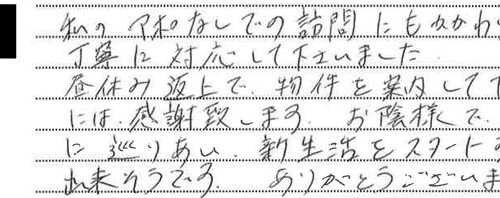 私の アポなしでの訪問にもかかわ
丁寧に対応して下さいました
昼休み返上で、物件を案内して
には、感謝致します。 お陰様で、
に巡りあい、新生活をスタート
出来そうです。 ありがとうございま